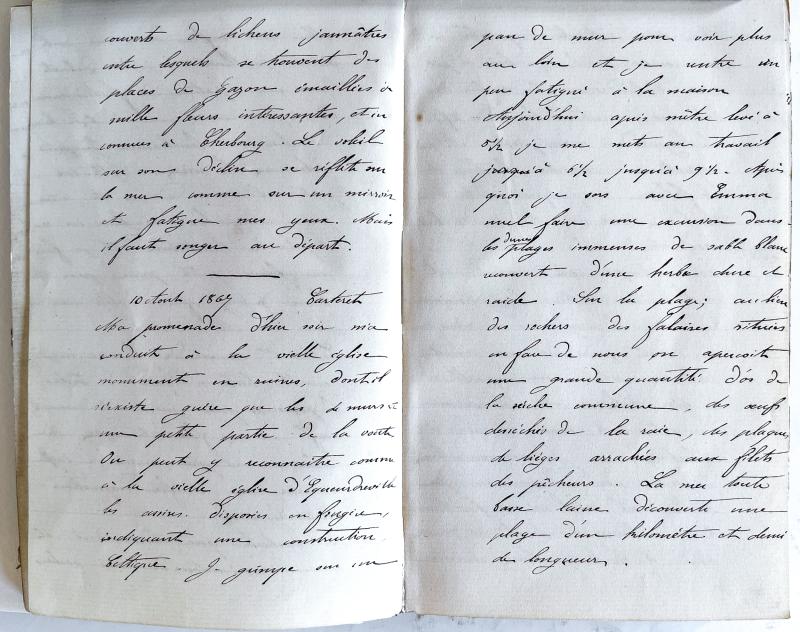 couverts de lichens jaunâtres
entre lesquels se trouvent des
places de Gazon émaillées de
mille fleurs intéressantes, et in
connues à Cherbourg. Le soleil
sur son déclin se reflète sur
la mer comme sur un miroir
et fatigue mes yeux. Mais
il faut songer au départ.
10 Août 1867 Carteret
Ma promenade d'hier soir m'a
conduit à la vielle église
monument en ruines, dont il
n'existe guère que les 4 murs et
une petite partie de la voute
On peut y reconnaitre comme
à la vielle église d'Equeurdreville
les assises disposées en fragère,
indiquant une construction
Celtique. Je grimpe sur un
pan de mur pour voir plus
au loin et je rentre un
peu fatigué à la maison
Aujourd'hui après m'être levé à
5½ je me mets au travail
jusqu'à 6½ jusqu'à 9½. Après
quoi je sors avec Emma
nuel faire une excursion dans
dunes
les plages immenses de sable blanc
recouvert d'une herbe dure et
raide. Sur la plage; au lieu
des rochers des falaises situées
en face de nous on aperçoit
une grande quantité d'os de
la sèche commune, des œufs
desséchés de la raie, des plaques
de lièges arrachées aux filets
des pêcheurs. La mer toute
basse laisse découverte une
plage d'un kilomètre et demi
de longueur.